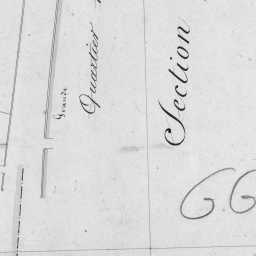 Grande
Quartier
Section
G.G